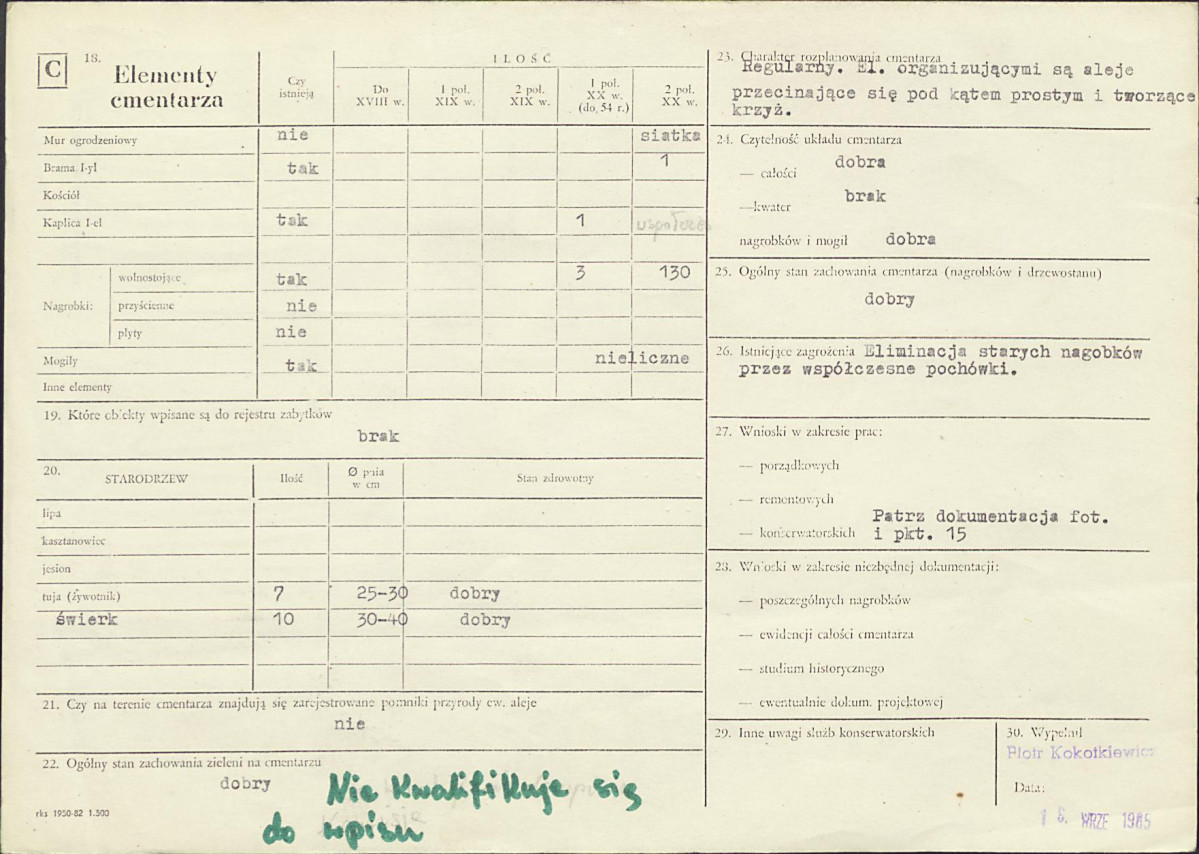 C
18.
Elementy
cmentarza
Czy
istnieją
ILOŚĆ
Do
XVIII w.
1 poł.
XIX w.
2 poł.
XIX w.
1 poł.
XX w.
(do, 54 r.)
2 poł.
XX w.
Mur ogrodzeniowy nie siatka
Brama 1-yl tak 1
Kościół
Kaplica 1-el tak 1
Nagrobki:
wolnostojące tak 3 130
przyścienne nie
płyty nie
Mogiły tak nieliczne
Inne elementy
19. Które obiekty wpisane są do rejestru zabytków
brak
20. STARODRZEW Ilość Ø pnia
w cm
Stan zdrowotny
lipa
kasztanowiec
jesion
tuja (żywotnik) 7 25-30 dobry
świerk 10 30-40 dobry
21. Czy na terenie cmentarza znajdują się zarejestrowane pomniki przyrody ew. aleje
nie
22. Ogólny stan zachowania zieleni na cmentarzu
dobry
Nie kwalifikuje się
do wpisu
rks 1950-82 1.500
23. Charakter rozplanowania cmentarza
Regularny. El. organizującymi są aleje
przecinające się pod kątem prostym i tworzące
krzyż.
24. Czytelność układu cmentarza
— całości dobra
—kwater brak
nagrobków i mogił dobra
25. Ogólny stan zachowania cmentarza (nagrobków i drzewostanu)
dobry
26. Istniejące zagrożenia Eliminacja starych nagobków
przez współczesne pochówki.
27. Wnioski w zakresie prac:
— porządkowych
— remontowych
Patrz dokumentacja fot.
— konserwatorskich i pkt. 15
28. Wnioski w zakresie niezbędnej dokumentacji:
— poszczególnych nagrobków
— ewidencji całości cmentarza
— studium historycznego
— ewentualnie dokum. projektowej
29. Inne uwagi służb konserwatorskich
30. Wypełnił
Piotr Kokotkiewicz
Data:
WRZE 1985